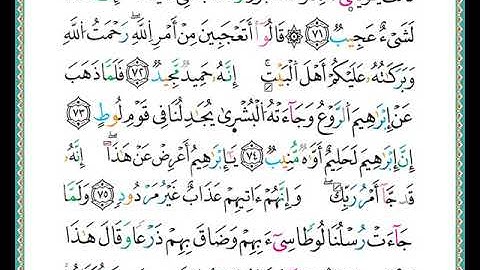 لَشَےْءٌ عَجِيبٌ ٧١ ۞ قَالُوٓاْ أَتَعْجَبِينَ مِنْ أَمْرِ اِ۬للَّهِۖ رَحْمَتُ اُ۬للَّهِ
وَبَرَكَٰتُهُۥ عَلَيْكُمْ أَهْلَ اَ۬لْبَيْتِۖ إِنَّهُۥ حَمِيدٌ مَّجِيدٌ ٧٢ فَلَمَّا ذَهَبَ
عَنْ إِبْرَٰهِيمَ اَ۬لرَّوْعُ وَجَآءَتْهُ اُ۬لْبُشْرَىٰ يُجَٰدِلُنَا فِي قَوْمِ لُوطٍ ٧٣
إِنَّ إِبْرَٰهِيمَ لَحَلِيمٌ أَوَّٰهٌ مُّنِيبٌ ٧٤ يَٰٓإِبْرَٰهِيمُ أَعْرِضْ عَنْ هَٰذَآۖ إِنَّهُۥ
قَدْ جَآءَ امْرُ رَبِّكَۖ وَإِنَّهُمْ ءَاتِيهِمْ عَذَابٌ غَيْرُ مَرْدُودٍ ٧٥ وَلَمَّا
جَآءَتْ رُسُلُنَا لُوطاً سِےٓءَ بِهِمْ وَضَاقَ بِهِمْ ذَرْعاً وَقَالَ هَٰذَا